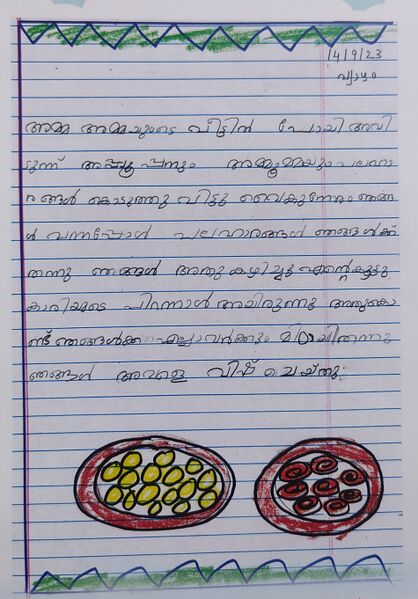 14/9/23
വ്യാഴം
അമ്മ അമ്മയുടെ വീട്ടിൽ പോയി അവി
ടുന്ന് അപ്പൂപ്പനും അമ്മൂമ്മയും പലഹാ
രങ്ങൾ കൊടുത്തു വിട്ടു വൈകുന്നേരം ഞങ്ങ
ൾ വന്നപ്പോൾ പലഹാരങ്ങൾ ഞങ്ങൾക്ക്
തന്നു ഞങ്ങൾ അതു കഴിച്ചു എന്റെ കൂട്ടു
കാരിയുടെ പിറന്നാൾ ആയിരുന്നു അതുകൊ
ണ്ട് ഞങ്ങൾക്ക് എല്ലാവർക്കും മിഠായി തന്നു
ഞങ്ങൾ അവളെ വിഷ് ചെയ്തു